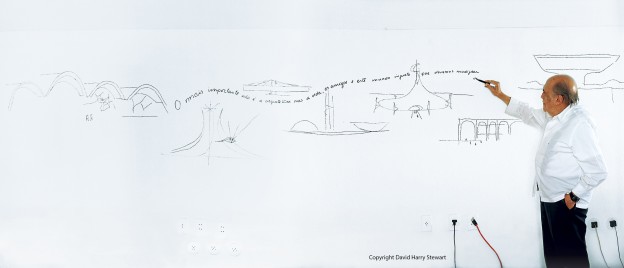 O mais importante não é a arquitetura mas a vida os amigos e este mundo injusto que devemos modificar
Copyright David Harry Stewart